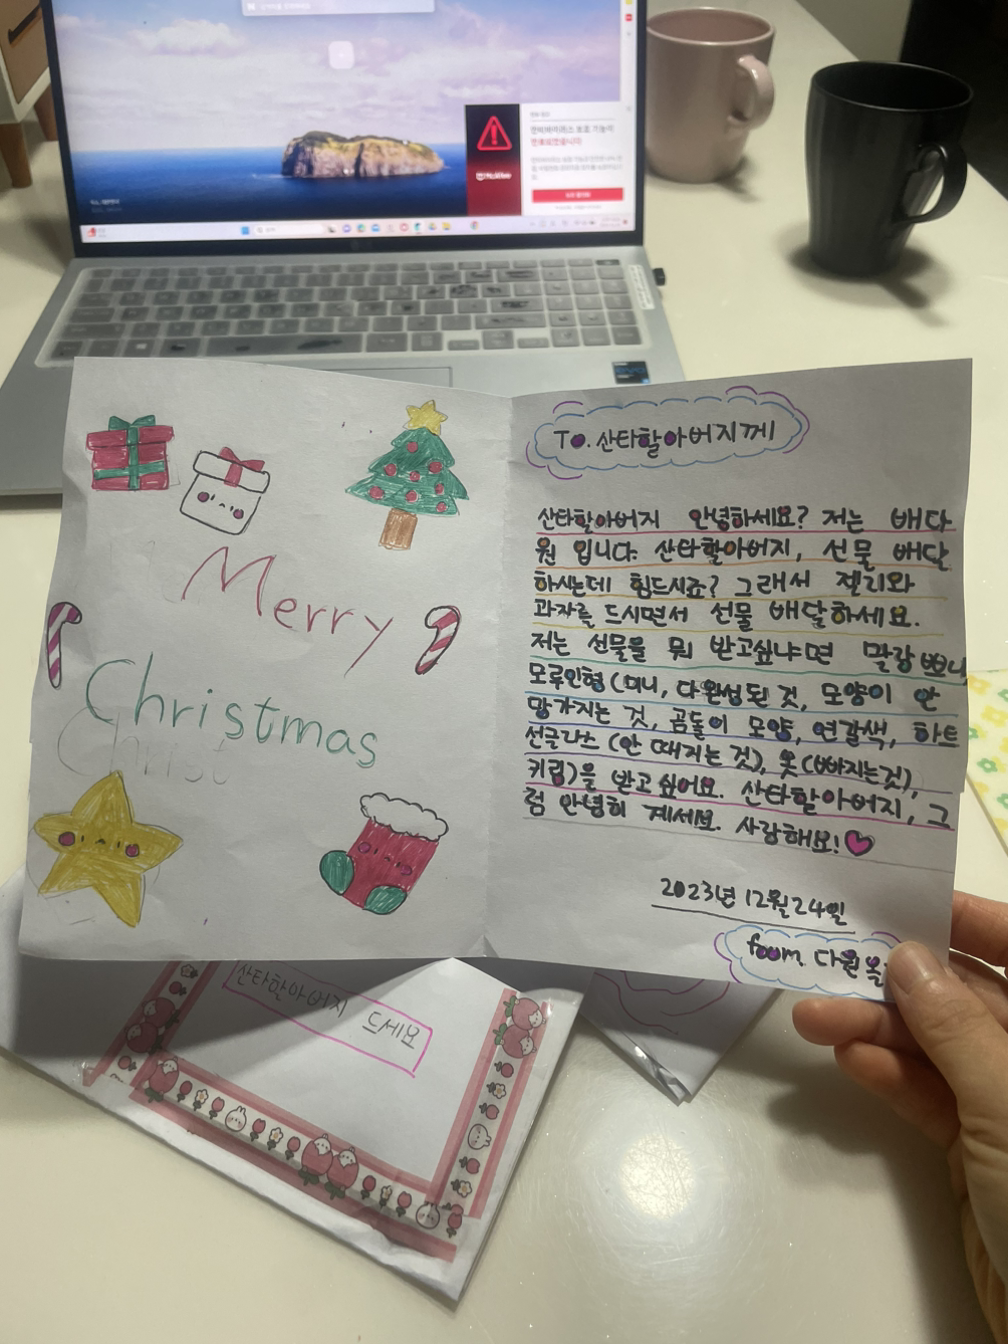 안티바이러스 보호 기능이
만료되었습니다
McAfee
Merry
Christmas
Christ
To. 산타할아버지께
산타할아버지 안녕하세요? 저는 배다
원 입니다. 산타할아버지, 선물 배달
하시는데 힘드시죠? 그래서 젤리와
과자를 드시면서 선물 배달하세요.
저는 선물을 뭐 받고싶냐면 말랑뽀니,
모루인형(미니, 다완성된 것, 모양이 안
망가지는 것, 곰돌이 모양, 연갈색, 하트
선글라스 (안 때지는 것), 옷(빠지는것),
키링)을 받고싶어요. 산타할아버지, 그
럼 안녕히 계세요. 사랑해요!
2023년 12월 24일
foom. 다원 올
산타할아버지 드세요